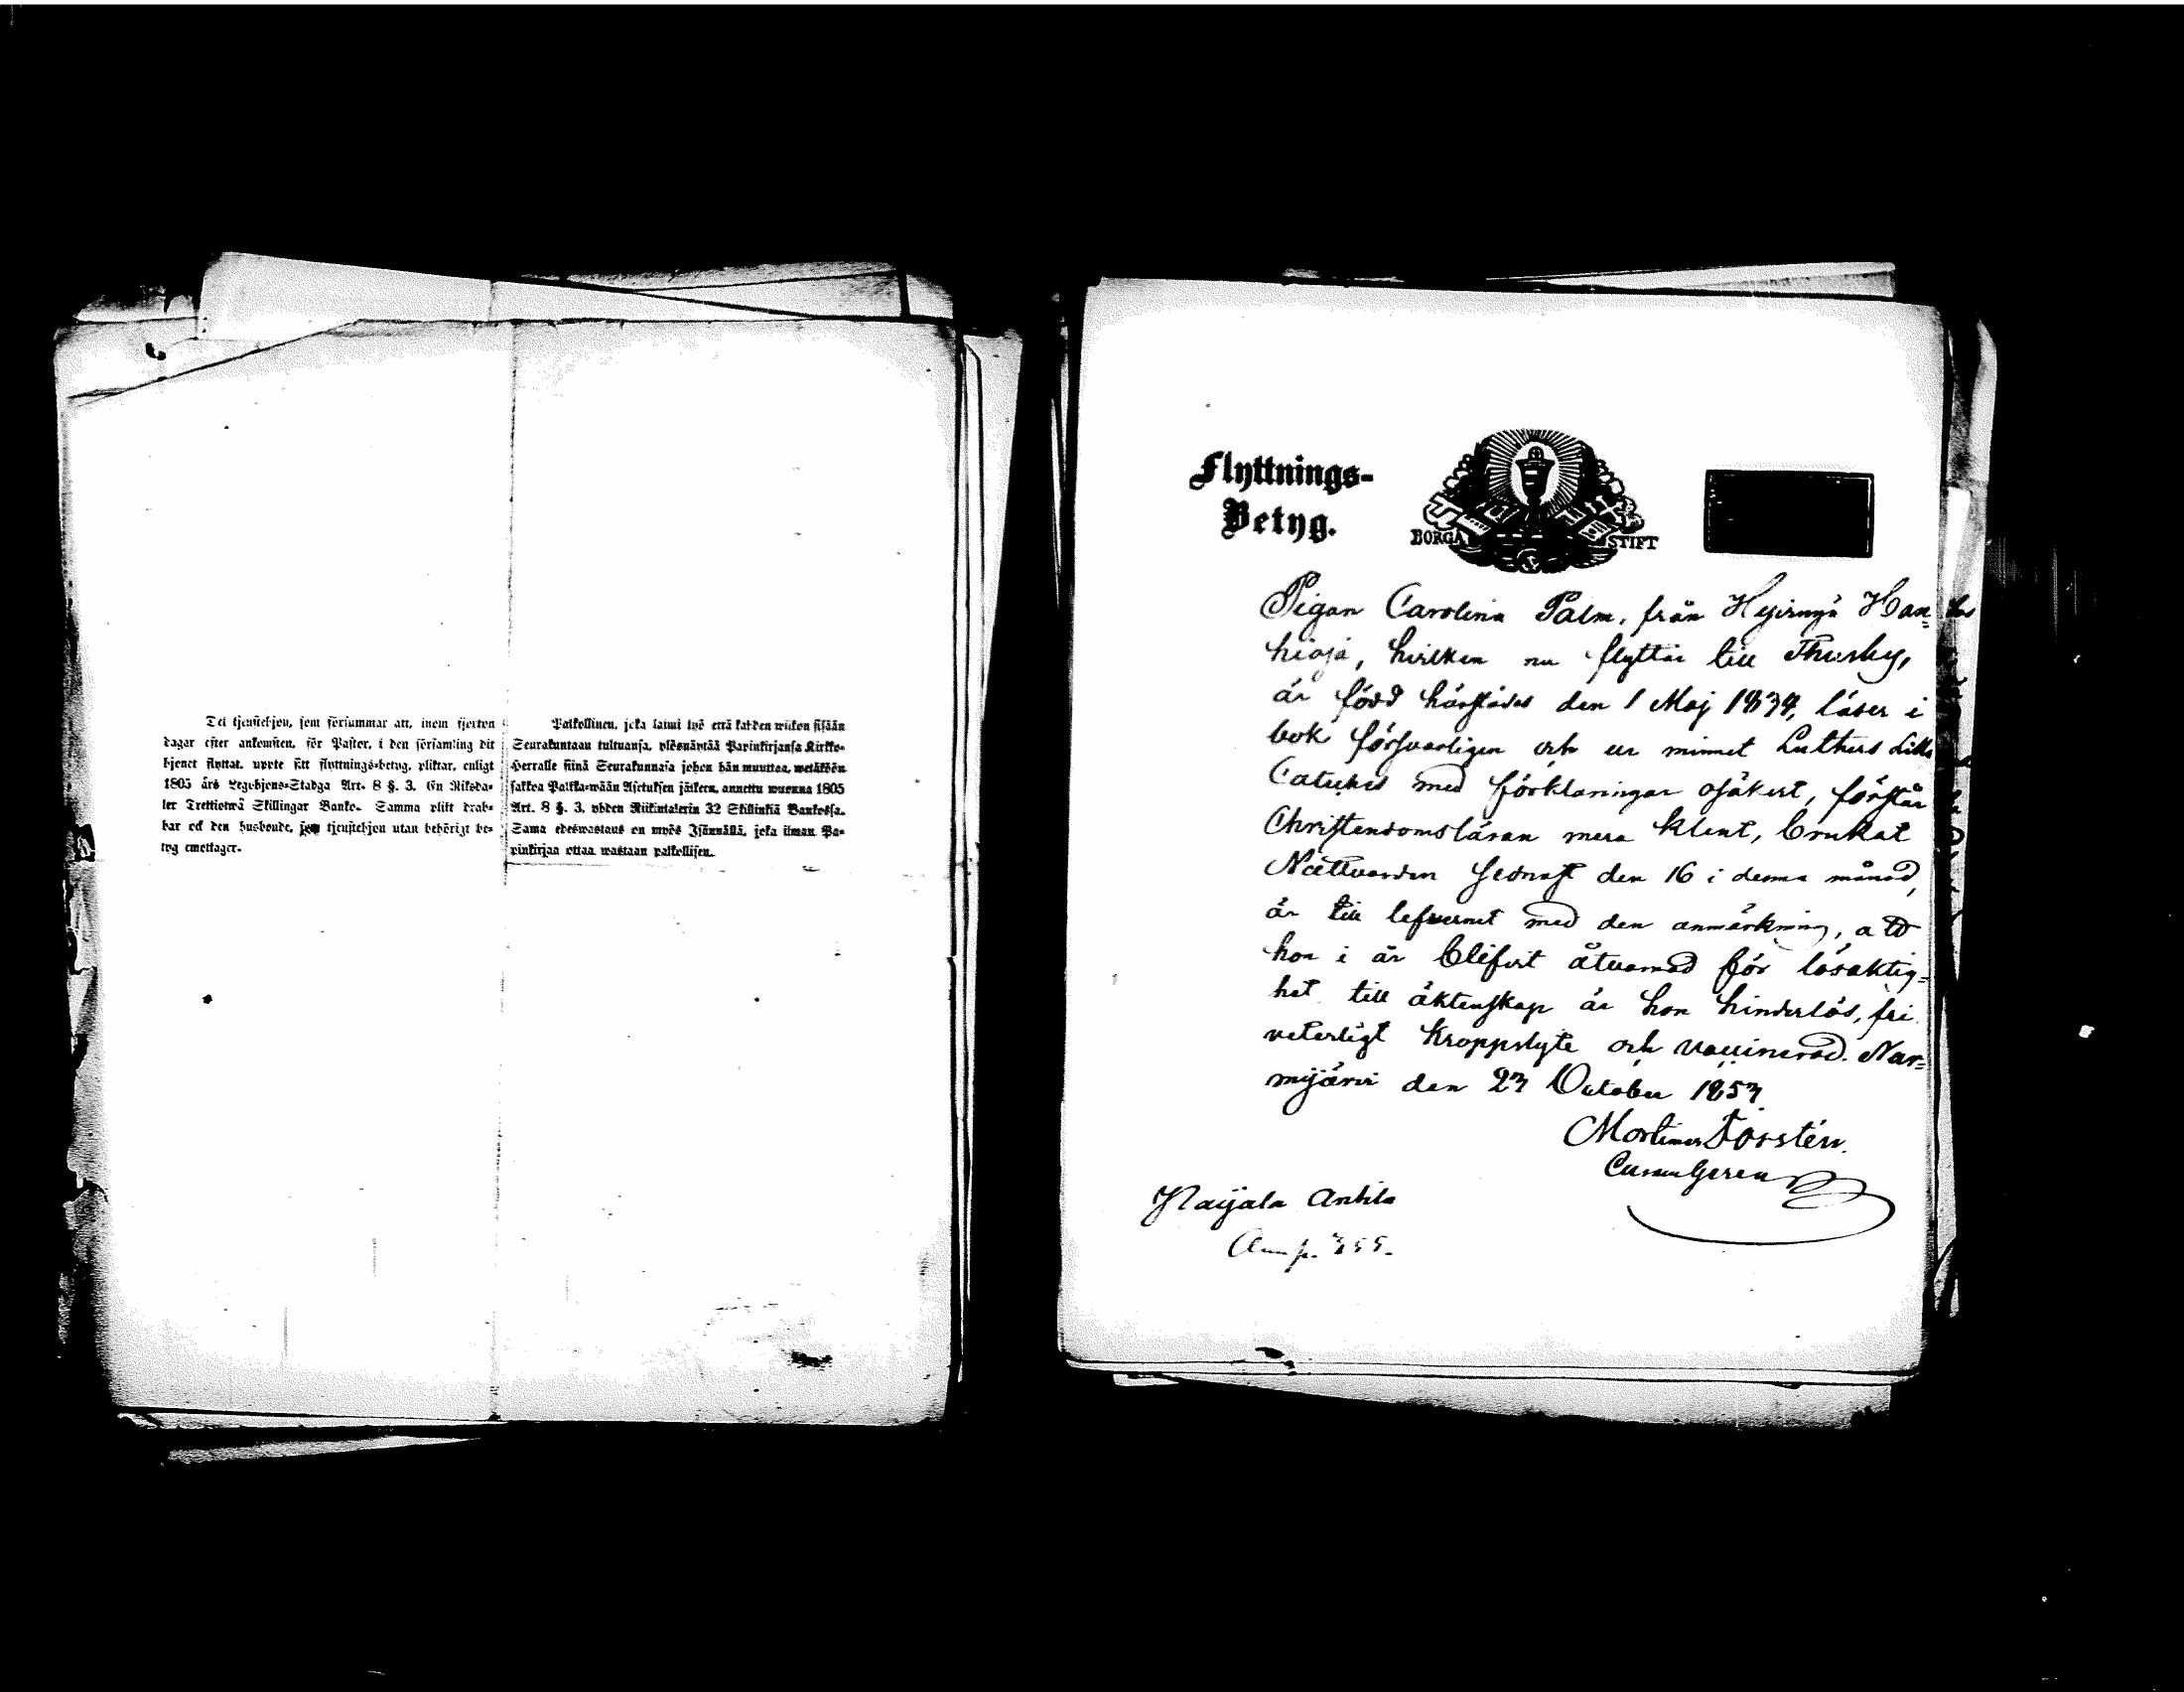 Det tjenstehjon, som försummar att, inom fjorton
dagar efter ankomsten, för Pastor, i den församling dit
hjonet flyttat, uppte sitt flyttnings-betyg, pliktar, enligt
1805 års Legohjons-Stadga Art. 8 §. 3. En Riksda-
ler Trettiotwå Skillingar Banko. Samma plikt drab-
bar ock den husbonde, som tjenstehjon utan behörigt be-
tyg emottager.
Palkollinen, joka laimi lyö että kahden wiikon sisään
Seurakuntaan tultuansa, ylösnäyttää Papinkirjansa Kirkko-
Herralle siinä Seurakunnasa johon hän muuttaa, wetäköön
sakkoa Palkka-wään Asetuksen jälkeen, annettu wuonna 1805
Art. 8 §. 3, yhden Riikintalerin 32 Skillinkiä Bankossa.
Sama edeswastaus on myös Isännällä, joka ilman Pa-
pinkirjaa ottaa wastaan palkollisen.
Flyttnings-
Betyg.
BORGÅ STIFT
Pigan Carolina Palm, från Han=
hioja, hvilken nu flyttar till Thusby,
är född härstädes den 1 Maj 1834, läser i
bok försvarligen och ur minnet Luthers Lilla
Cateches med förklaringar osäkert, förstår
Christendomsläran mera klent, brukat
Nattvarden sednast den 16 i denna månad,
är till lefvernet med den anmärkning, att
hon i år blifvit åtvarnad för lösaktig=
het till äktenskap är hon hinderlös, fri
veterligt kroppslyte och vaccinerad. Nur=
mijärvi den 23 October 1853
Mortimer Forstén.
Nayala Antila